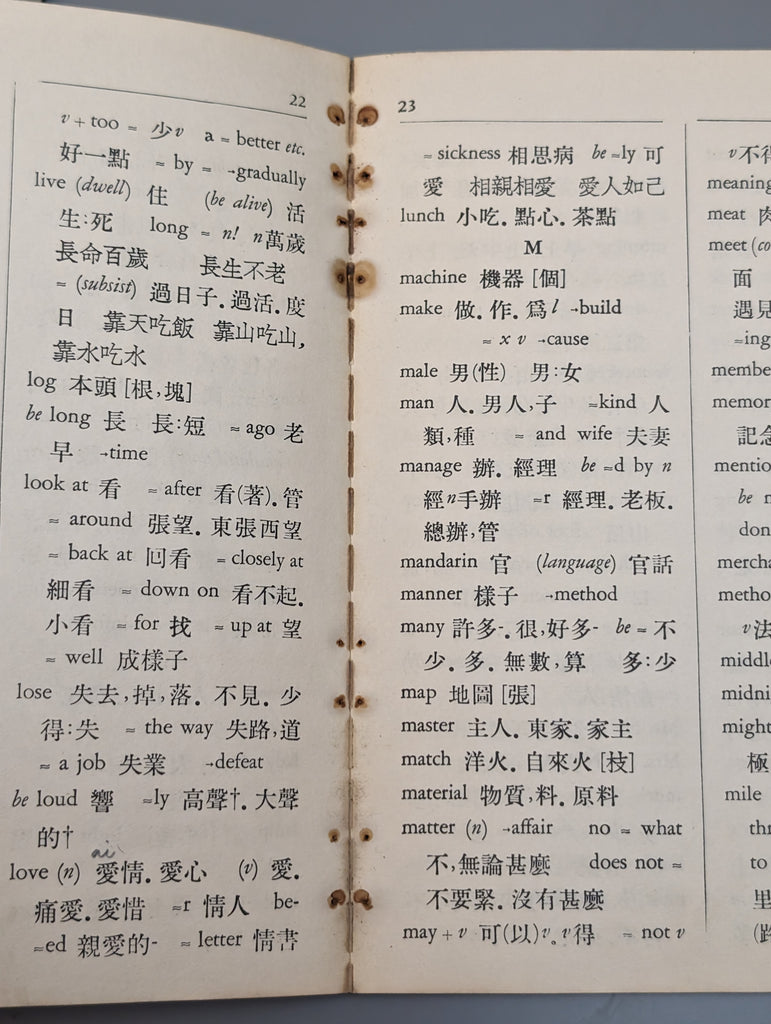 22
v + too = 少v a = better etc.
好一點 = by = →gradually
live (dwell) 住 (be alive) 活
生:死 long = n! n萬歲
長命百歲 長生不老
= (subsist) 過日子. 過活. 度
日 靠天吃飯 靠山吃山,
靠水吃水
log 木頭 [根,塊]
be long 長 長:短 = ago 老
早 →time
look at 看 = after 看(著). 管
= around 張望. 東張西望
= back at 回看 = closely at
細看 = down on 看不起.
小看 = for 找 = up at 望
= well 成樣子
lose 失去,掉,落. 不見. 少
得:失 = the way 失路,道
= a job 失業 →defeat
be loud 響 =ly 高聲†. 大聲
的†
ai
love (n) 愛情. 愛心 (v) 愛.
痛愛. 愛惜 =r 情人 be-
=ed 親愛的- = letter 情書
23
= sickness 相思病 be =ly 可
愛 相親相愛 愛人如己
lunch 小吃. 點心. 茶點
M
machine 機器 [個]
make 做. 作. 爲l →build
= x v →cause
male 男(性) 男:女
man 人. 男人,子 =kind 人
類,種 = and wife 夫妻
manage 辦. 經理 be =d by n
經n手辦 =r 經理. 老板.
總辦,管
mandarin 官 (language) 官話
manner 樣子 →method
many 許多-. 很,好多- be = 不
少. 多. 無數,算 多:少
map 地圖 [張]
master 主人. 東家. 家主
match 洋火. 自來火 [枝]
material 物質,料. 原料
matter (n) →affair no = what
不,無論甚麼 does not =
不要緊. 沒有甚麼
may + v 可(以)v。v得 = not v
v不得
meaning
meat 肉
meet (co
面
遇見
=ing
membe
memor
記念
mentio
be n
don
mercha
metho
v法
middl
midni
might
極
mile
thr
to
里
(路